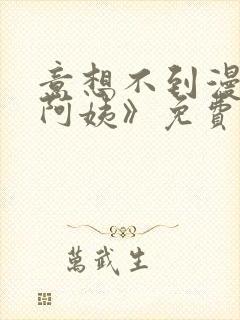 意想不到漫
阿姨》免費
萬武生